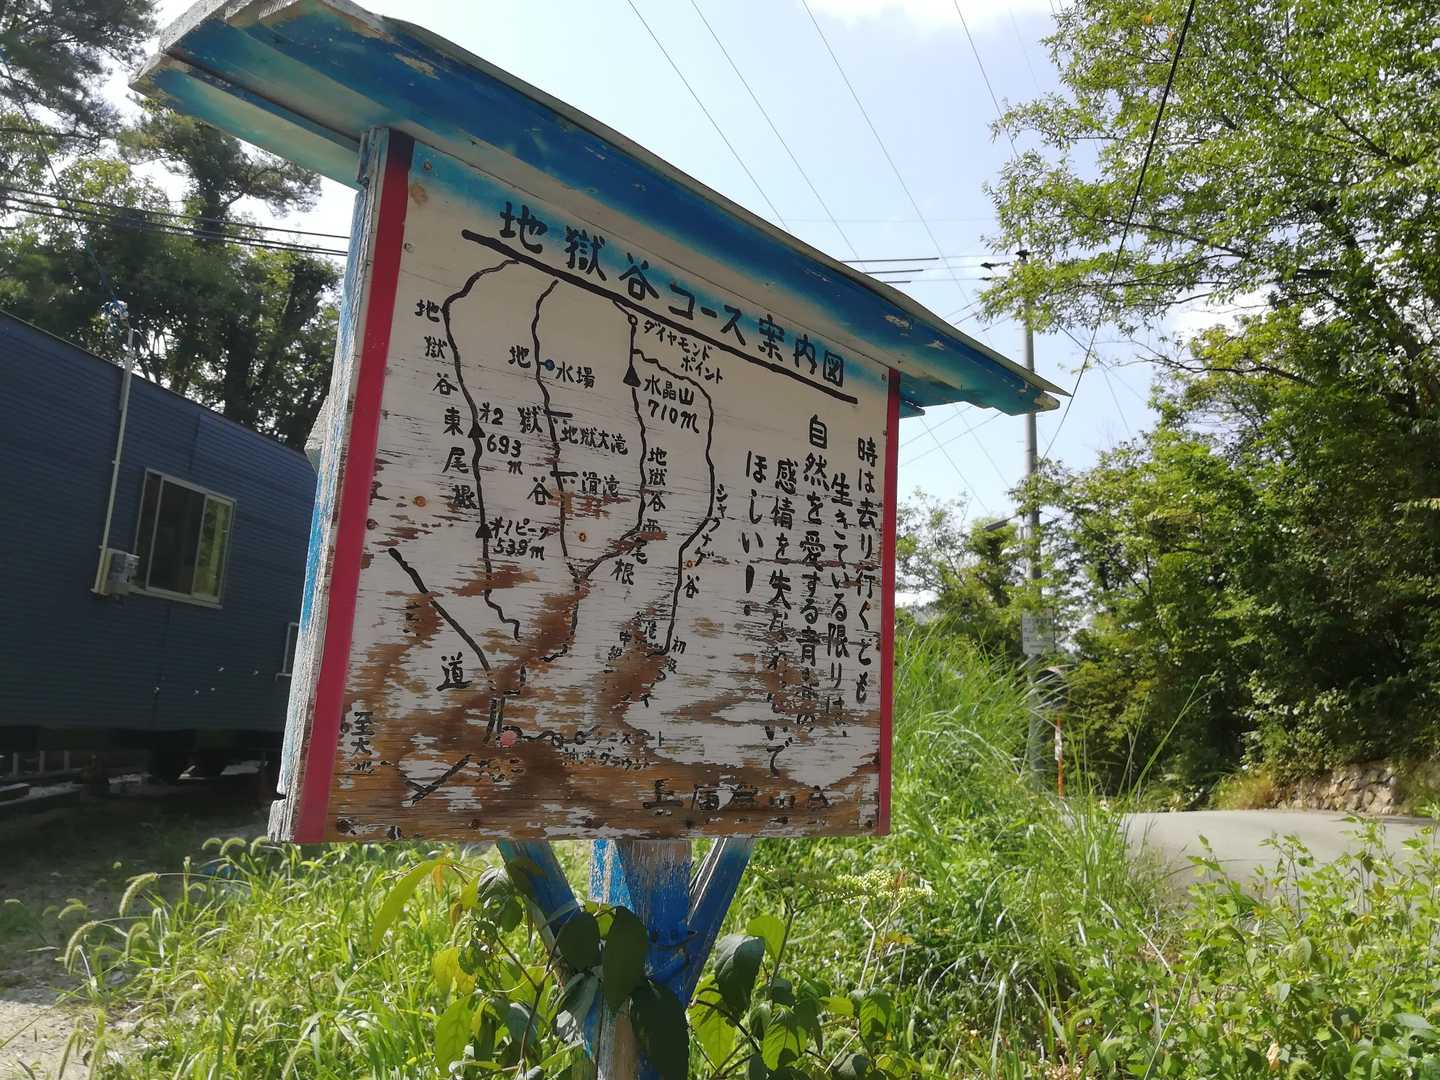 地獄谷コース案内図
地獄谷東尾根
地獄谷
水場
地獄大滝
滑滝
オ2
693m
オ1ピーク
538m
ダイヤモンド
ポイント
水晶山
710m
地獄谷西尾根
シャクナゲ谷
初級
中級
道
至大
グラウンド
時は去り行くとも
生きている限りは、
自然を愛する青
感情を失
いで
ほしい!